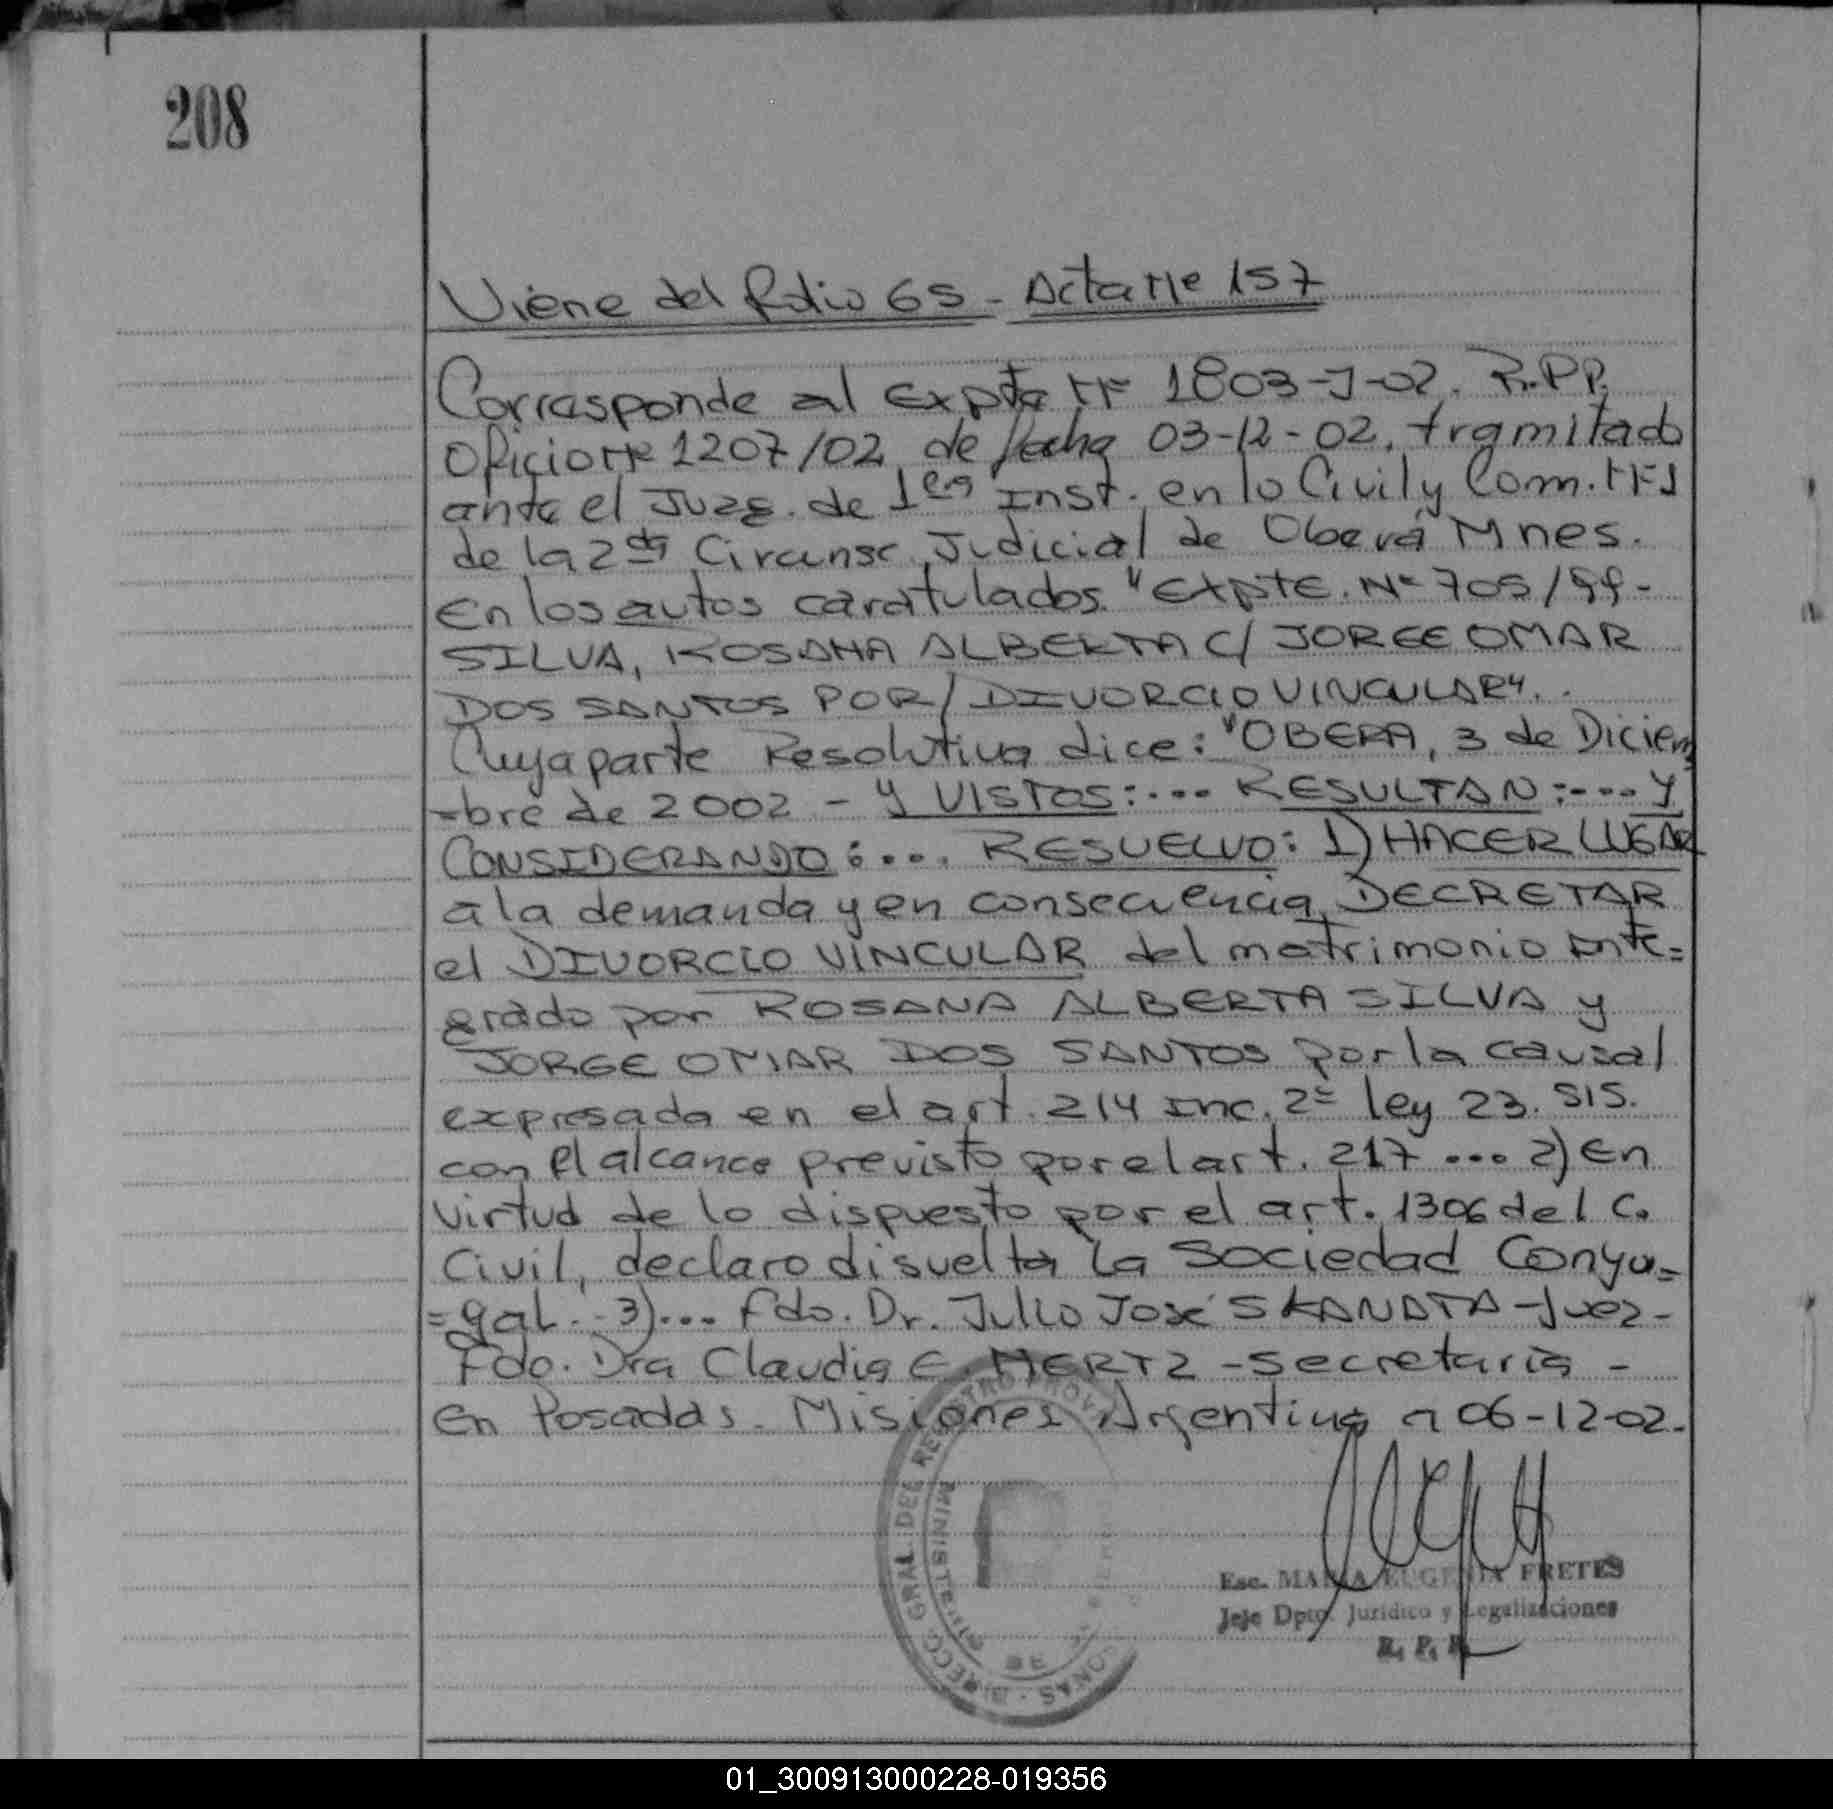 208
Viene del folio 65 - Acta Nº 157
Corresponde al Expte Nº 1803-J-02. R.P.P.
Oficio Nº 1207/02 de fecha 03-12-02, tramitado
ante el Juzg. de 1era Inst. en lo Civil y Com. Nº 1
de la 2da Circunsc. Judicial de Oberá Mnes.
En los autos caratulados "EXPTE. Nº 705/99-
SILVA, ROSANA ALBERTA C/ JORGE OMAR
DOS SANTOS POR/DIVORCIO VINCULAR"..
Cuya parte Resolutiva dice: "OBERA, 3 de Diciem
-bre de 2002 - Y VISTOS:... RESULTAN:... Y
CONSIDERANDO:... RESUELVO: 1) HACER LUGAR
a la demanda y en consecuencia, DECRETAR
el DIVORCIO VINCULAR del matrimonio inte=
grado por ROSANA ALBERTA SILVA y
JORGE OMAR DOS SANTOS por la causal
expresada en el art. 214 inc. 2º ley 23.515.
con el alcance previsto por el art. 217 ... 2) En
virtud de lo dispuesto por el art. 1306 del C.
Civil, declaro disuelta la Sociedad Conyu=
=gal.. 3)... Fdo. Dr. Julio José SKANATA - Juez -
Fdo. Dra Claudia E. HERTZ - Secretaria -
En Posadas - Misiones Argentina a 06-12-02.
DIRECC. GRAL. DEL REGISTRO PROV.
MINISTERIO DE
Esc. MARIA EUGENIA FRETES
Jefe Dpto. Jurídico y Legalizaciones
R. P. P.
01_300913000228-019356